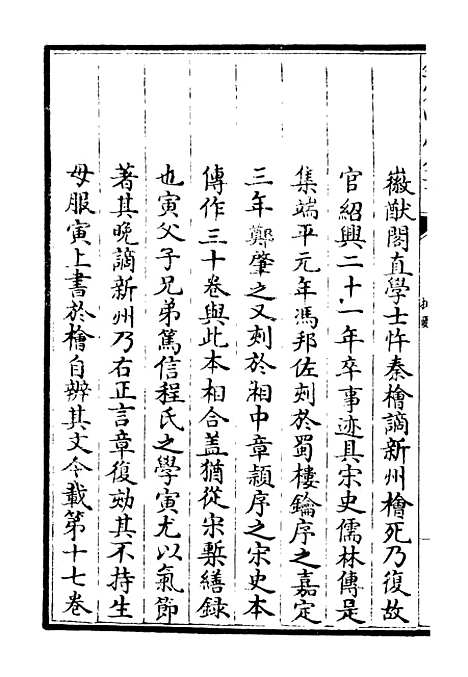 徽猷閣直學士忤秦檜謫新州檜死乃復故
官紹興二十一年卒事迹具宋史儒林傳是
集端平元年馮邦佐刻於蜀樓鑰序之嘉定
三年鄭肇之又刻於湘中章穎序之宋史本
傳作三十卷與此本相合蓋猶從宋槧繕錄
也寅父子兄弟篤信程氏之學寅尤以氣節
著其晚謫新州乃右正言章復劾其不持生
母服寅上書於檜自辨其文今載第十七卷